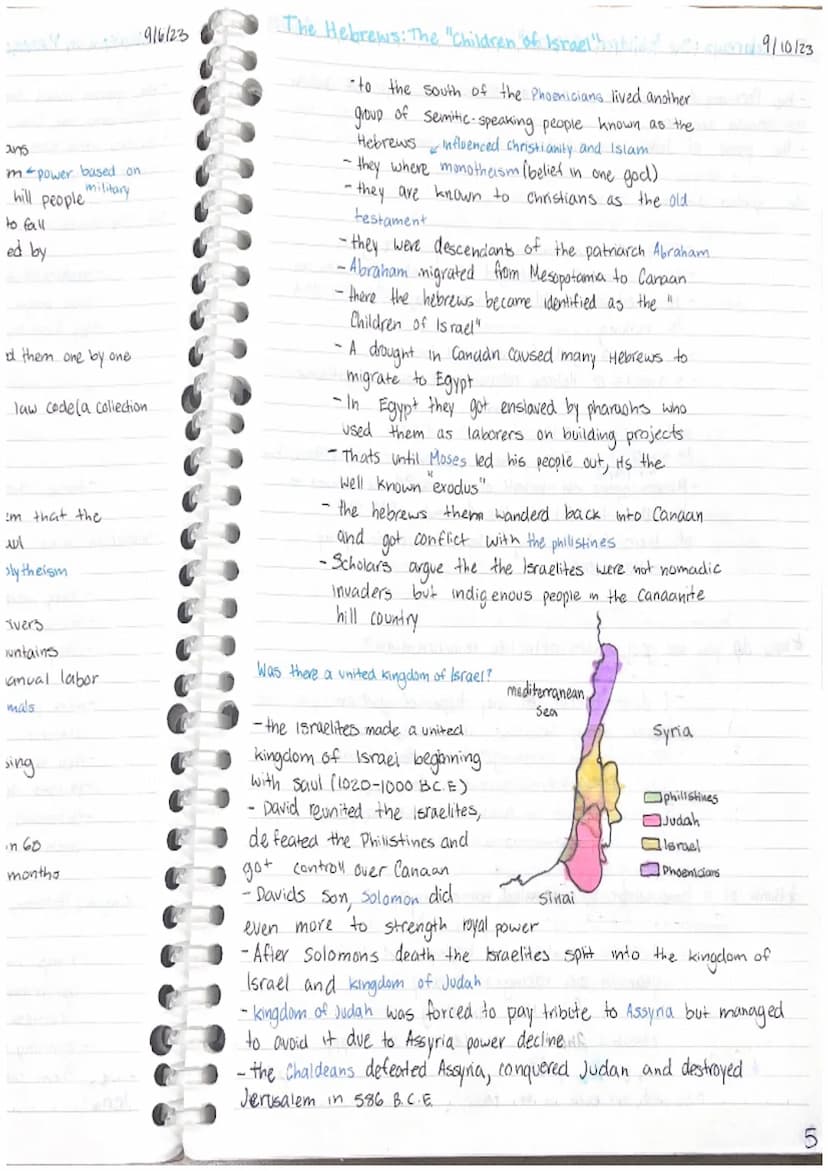 9/6/23
ans
m ← power based on
military
hill people
to fall
ed by
d them one by one
law code(a collection
em that the
olytheism
ivers
untains
anual labor
mals
sing
in 60
months
The Hebrews: The "Children of Israel"
9/10/23
- to the south of the Phoenicians lived another
group of semitic-speaking people known as the
Hebrews ↙ influenced christianity and Islam
- they where monotheism (belief in one god)
- they are known to christians as the old
testament
- they were descendants of the patriarch Abraham
- Abraham migrated from Mesopotamia to Canaan
- there the hebrews became identified as the "
Children of Israel"
- A drought in Canaan caused many Hebrews to
migrate to Egypt
- In Egypt they got enslaved by pharaohs who
used them as laborers on building projects
- Thats until Moses led his people out, its the
well known "exodus"
- the hebrews them wanderd back into Canaan
and got conflict with the philistines
- Scholars argue the the Israelites were not nomadic
invaders but indigenous people in the Canaanite
hill country
Was there a united kingdom of Israel?
- the Israelites made a united
kingdom of Israel beginning
with saul (1020-1000 B.C.E)
- David reunited the Israelites,
defeated the Philistines and
got controll over Canaan
- Davids son, Solomon did
even more to strength royal power
- After Solomons death the Israelites split into the kingdom of
Israel and kingdom of Judah
- kingdom of Judah was forced to pay tribute to Assyria but managed
to avoid it due to Assyria power decline
- the Chaldeans defeated Assyria, conquered Judah and destroyed
Jerusalem in 586 B.C.E
mediterranean
sea
Syria
philistines
Judah
Israel
Phoenicians
Sinai
5